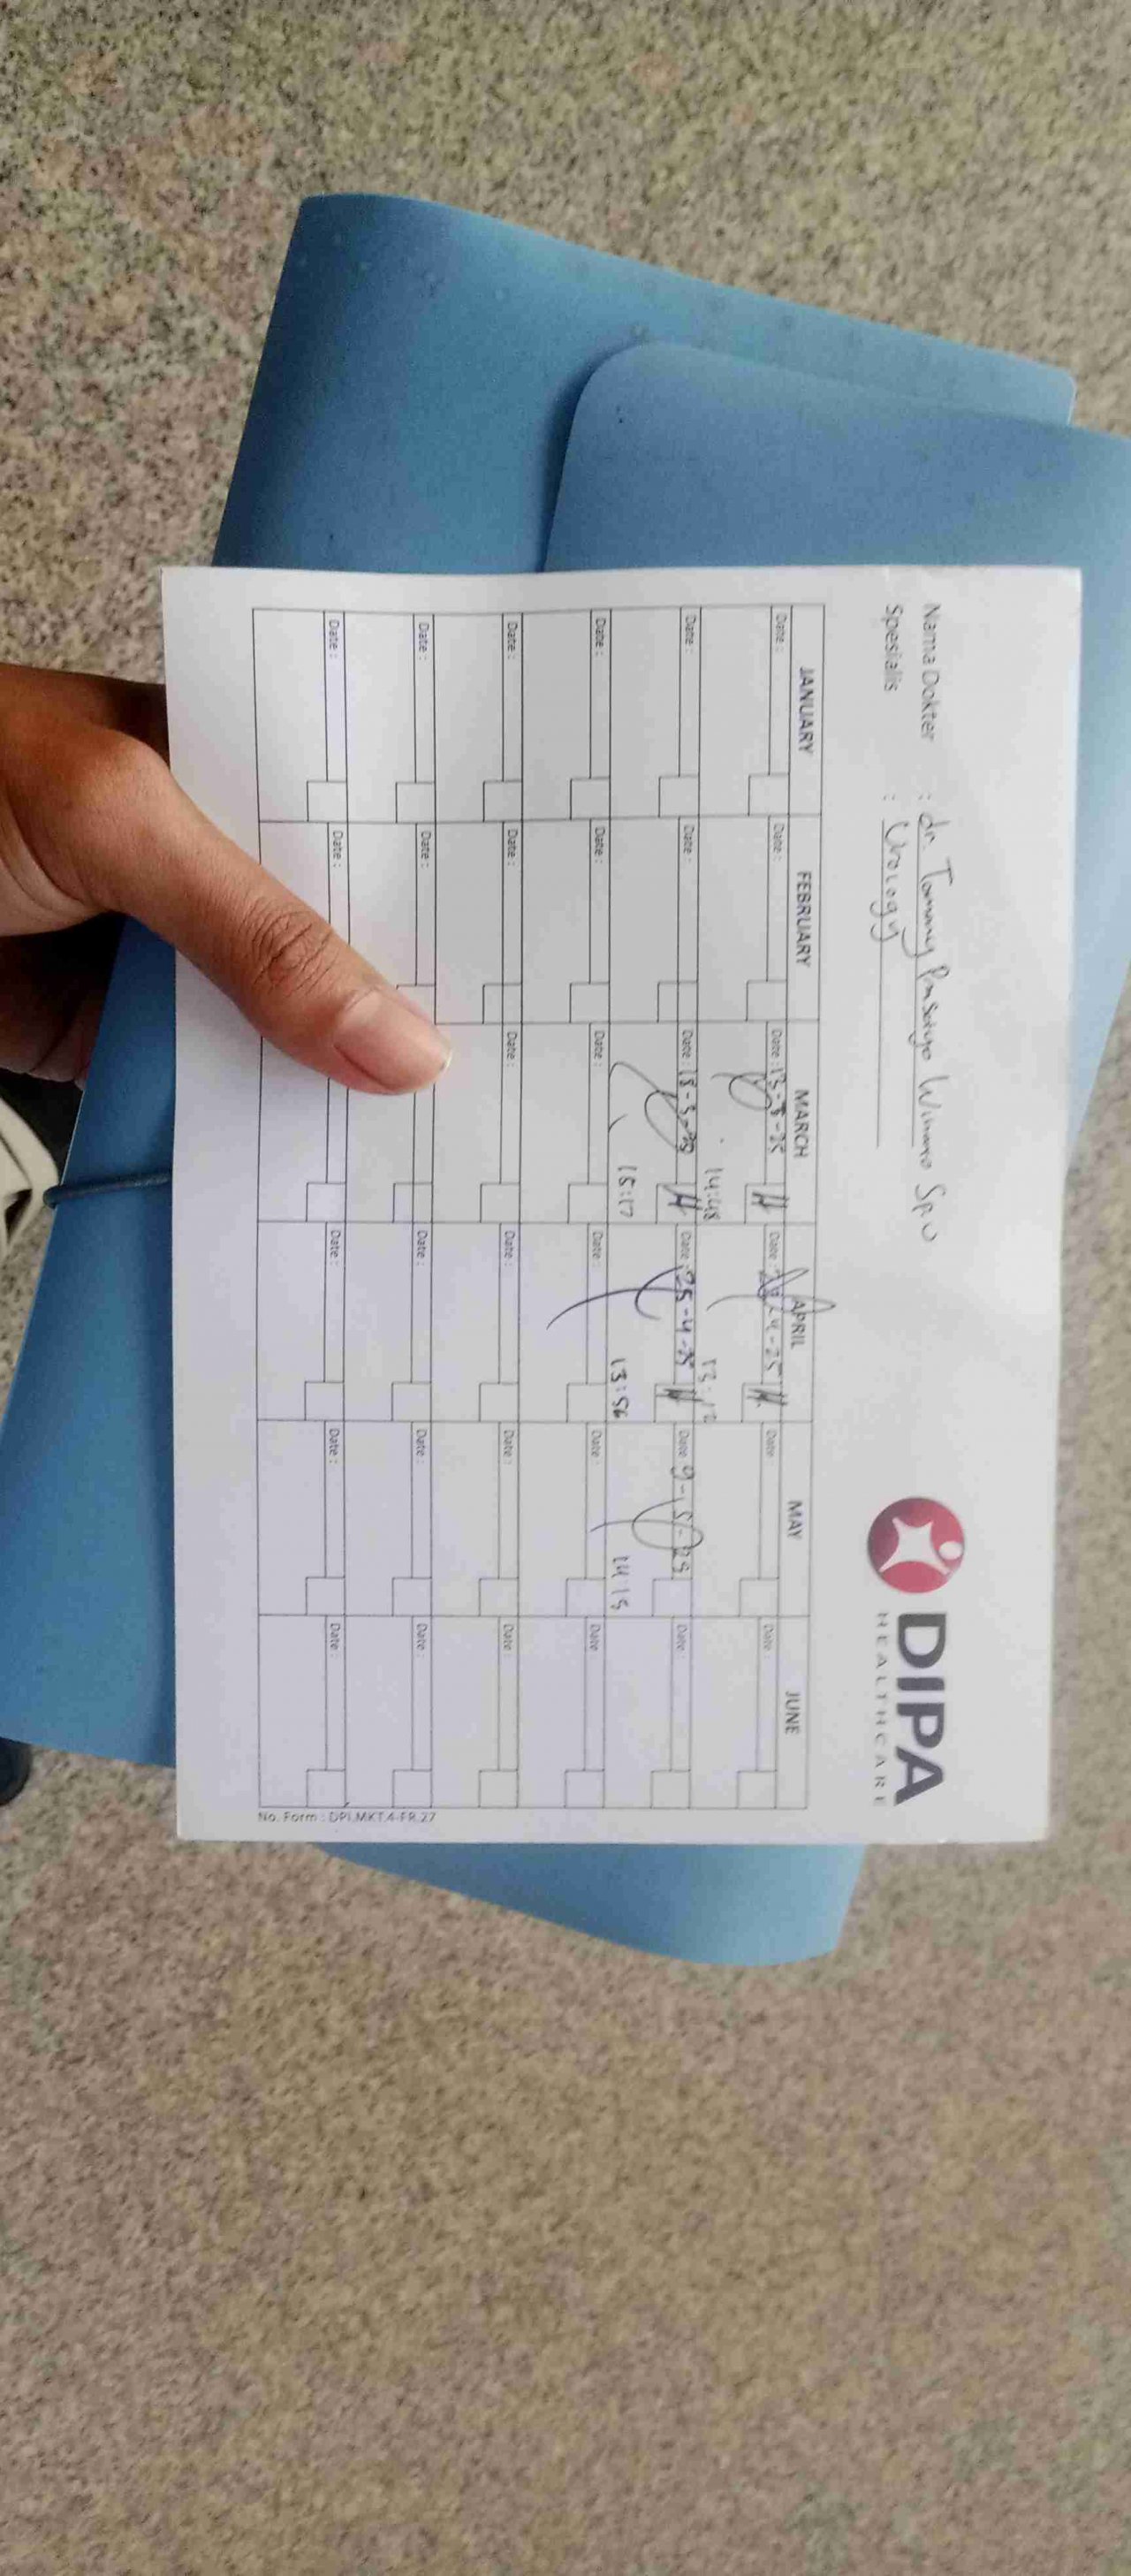 DIPA
HEALTHCARE
Nama Dokter : dr. Tommy Wimano Sp.U
Spesialis : Urology
JANUARY FEBRUARY MARCH APRIL MAY JUNE
Date : Date : Date : 13-3-25 Date : 24-4-25 Date : Date :
14:48 13:12
Date : Date : Date : 18-3-25 Date : 25-4-25 Date : 9-5-25 Date :
15:17 13:56 14:15
Date : Date : Date : Date : Date : Date :
Date : Date : Date : Date : Date : Date :
Date : Date : Date : Date : Date :
Date : Date : Date : Date : Date :
No. Form : DPI.MKT.4-FR.27